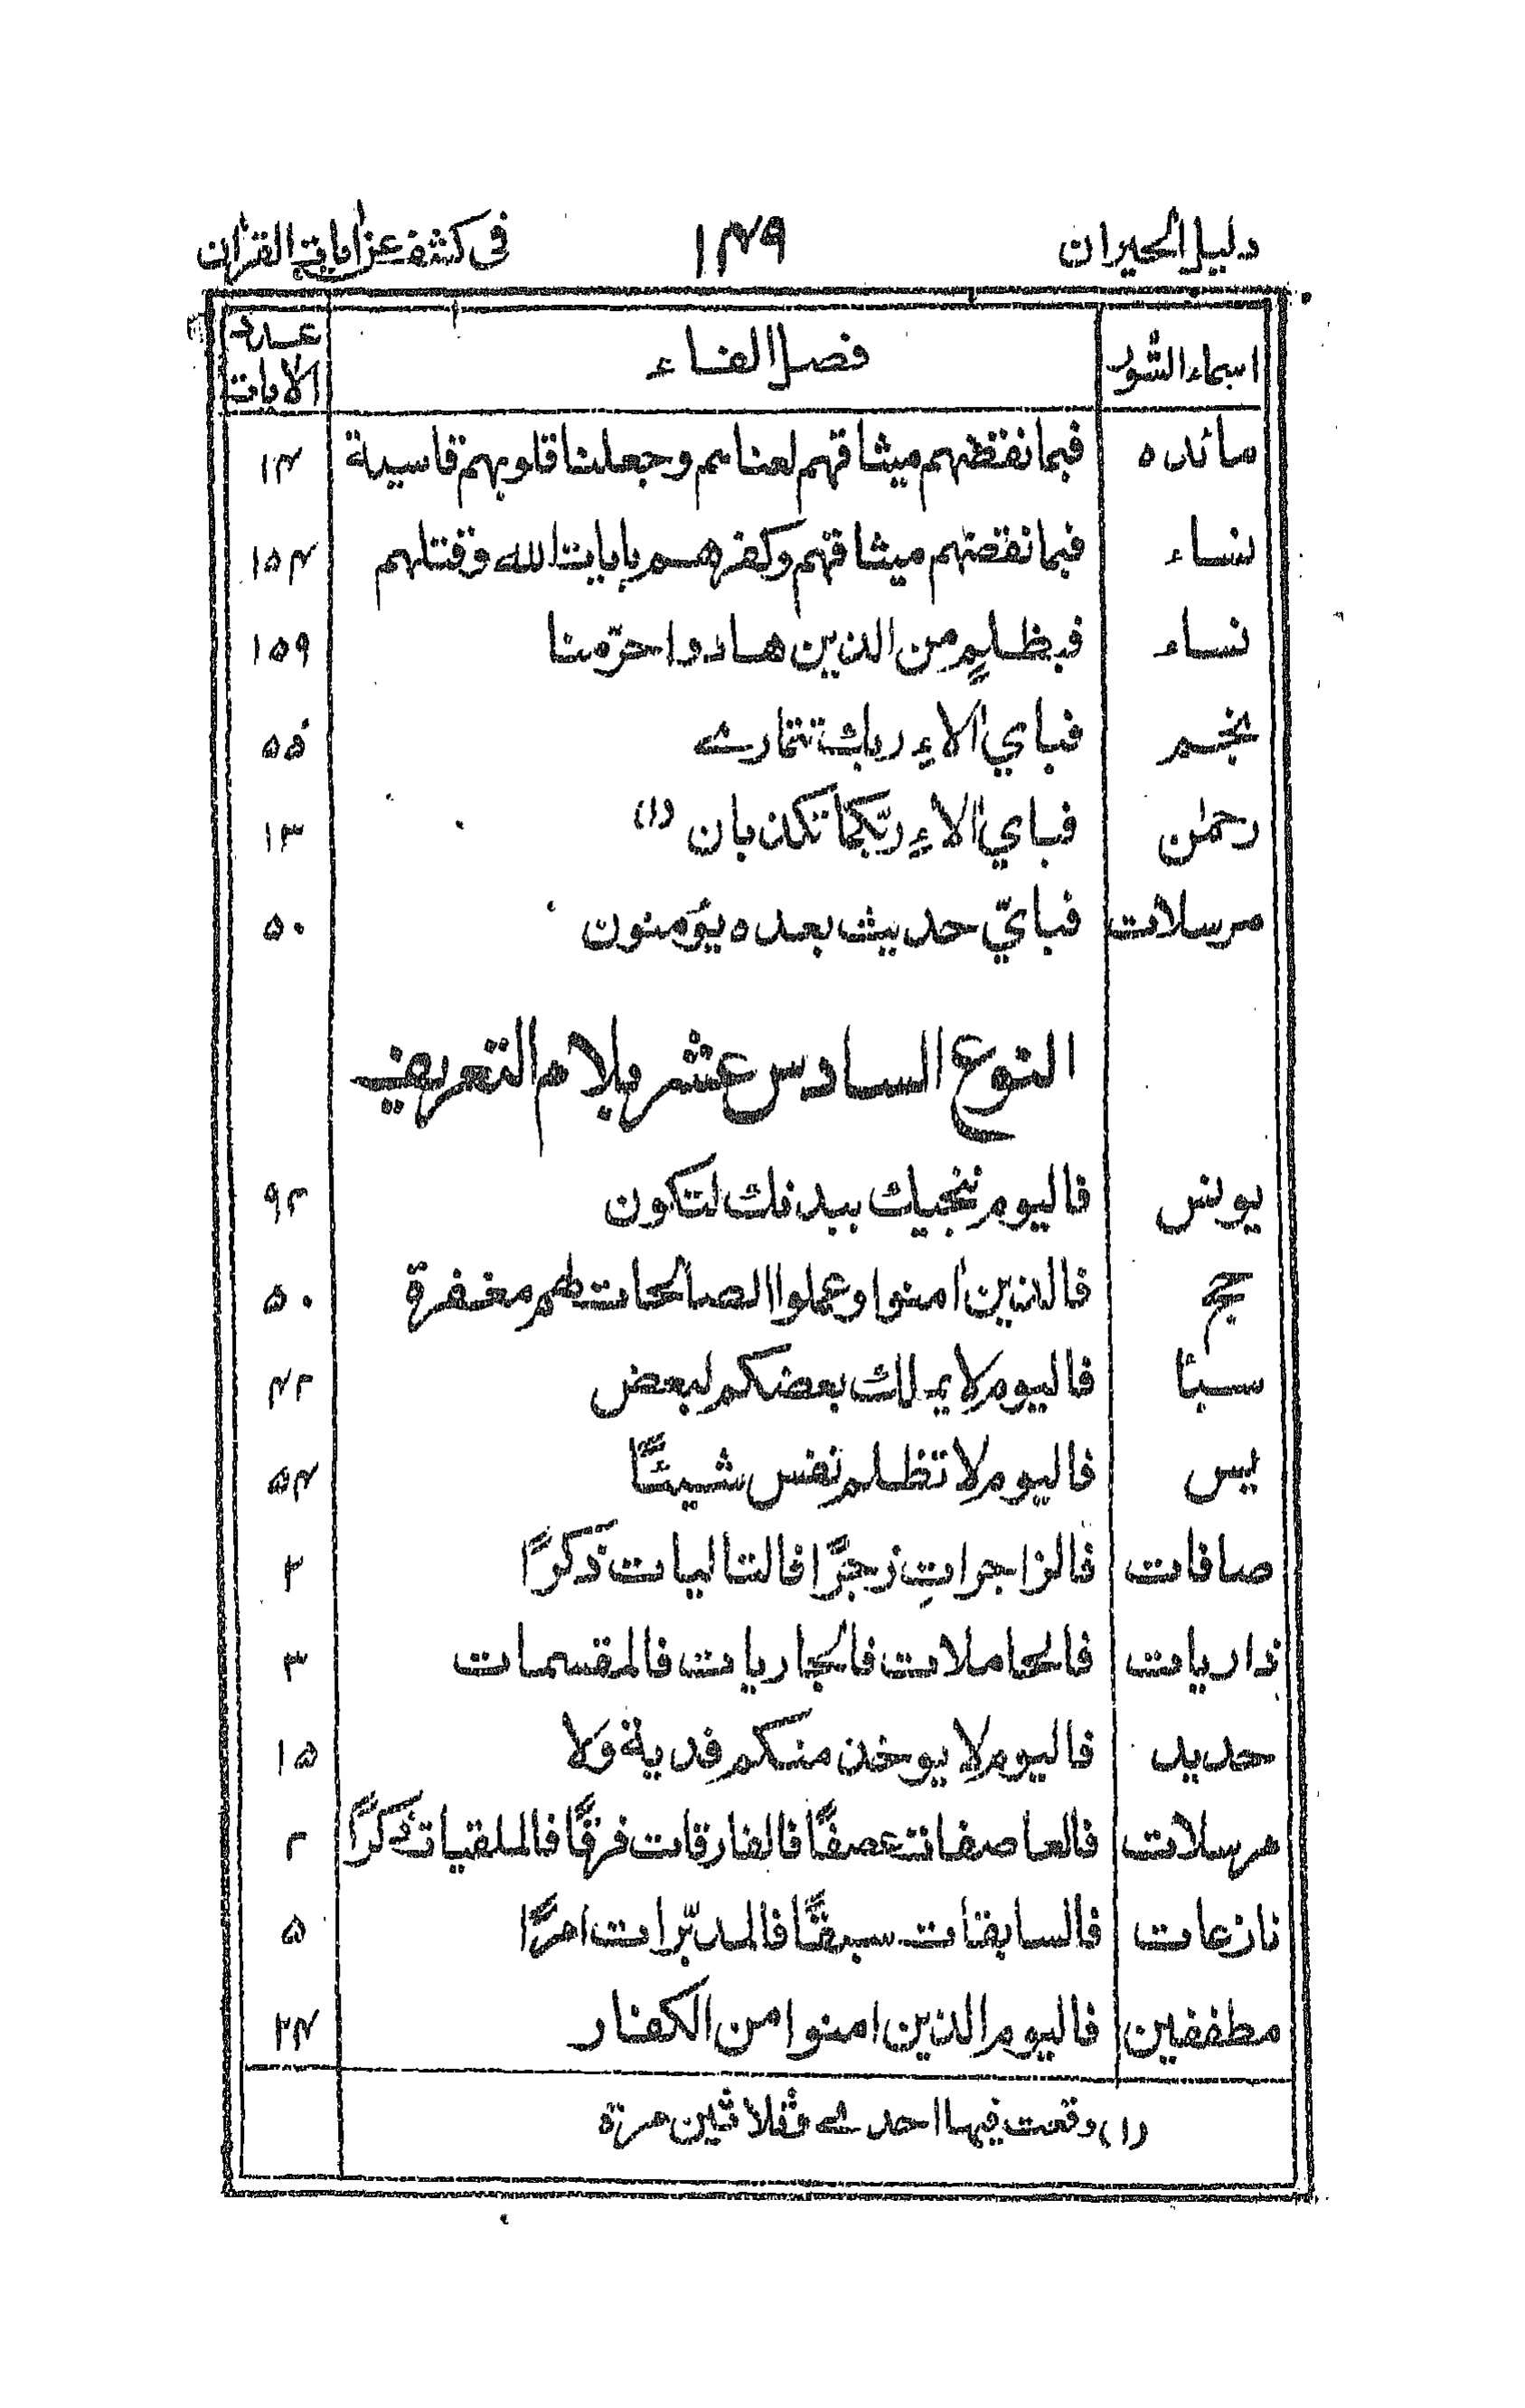 دليل الحيران ١٤٩ في كشف عن اٰيات القراٰن
اسماء السُّور فصل الفاء عدد الآيات
مائده فبما نقظهم ميثاقهم لعناهم وجعلنا قلوبهم قاسية ١٤
نساء فبما نقضهم ميثاقهم وكفرهم باٰيات الله وقتلهم ١٥٤
نساء فبظلمٍ من الذين هادوا حرّمنا ١٥٩
نجم فباي اٰلاءِ ربك تتمارى ٥٥
رحمٰن فباي اٰلاءِ ربّكما تكذبان (١) ١٣
مرسلات فبايّ حديث بعده يؤمنون ٥٠
النوع السادس عشر بلام التعريف
يونس فاليوم ننجيك ببدنك لتكون ٩٢
حج فالذين اٰمنوا وعملوا الصالحات لهم مغفرة ٥٠
سبأ فاليوم لا يملك بعضكم لبعض ٤٢
يٰس فاليوم لا تظلم نفس شيئًا ٥٤
صافات فالزاجراتِ زجرًا فالتاليات ذكرًا ٢
ذاريات فالحاملات فالجاريات فالمقسمات ٣
حديد فاليوم لا يوخذ منكم فدية ولا ١٥
مرسلات فالعاصفات عصفًا فالفارقات فرقًا فالملقيات ذكرًا ٢
نازعات فالسابقات سبقًا فالمدبّرات امرًا ٥
مطففين فاليوم الذين اٰمنوا من الكفار ٣٤
(١) وقعت فيها احدى وثلاثين مرّة